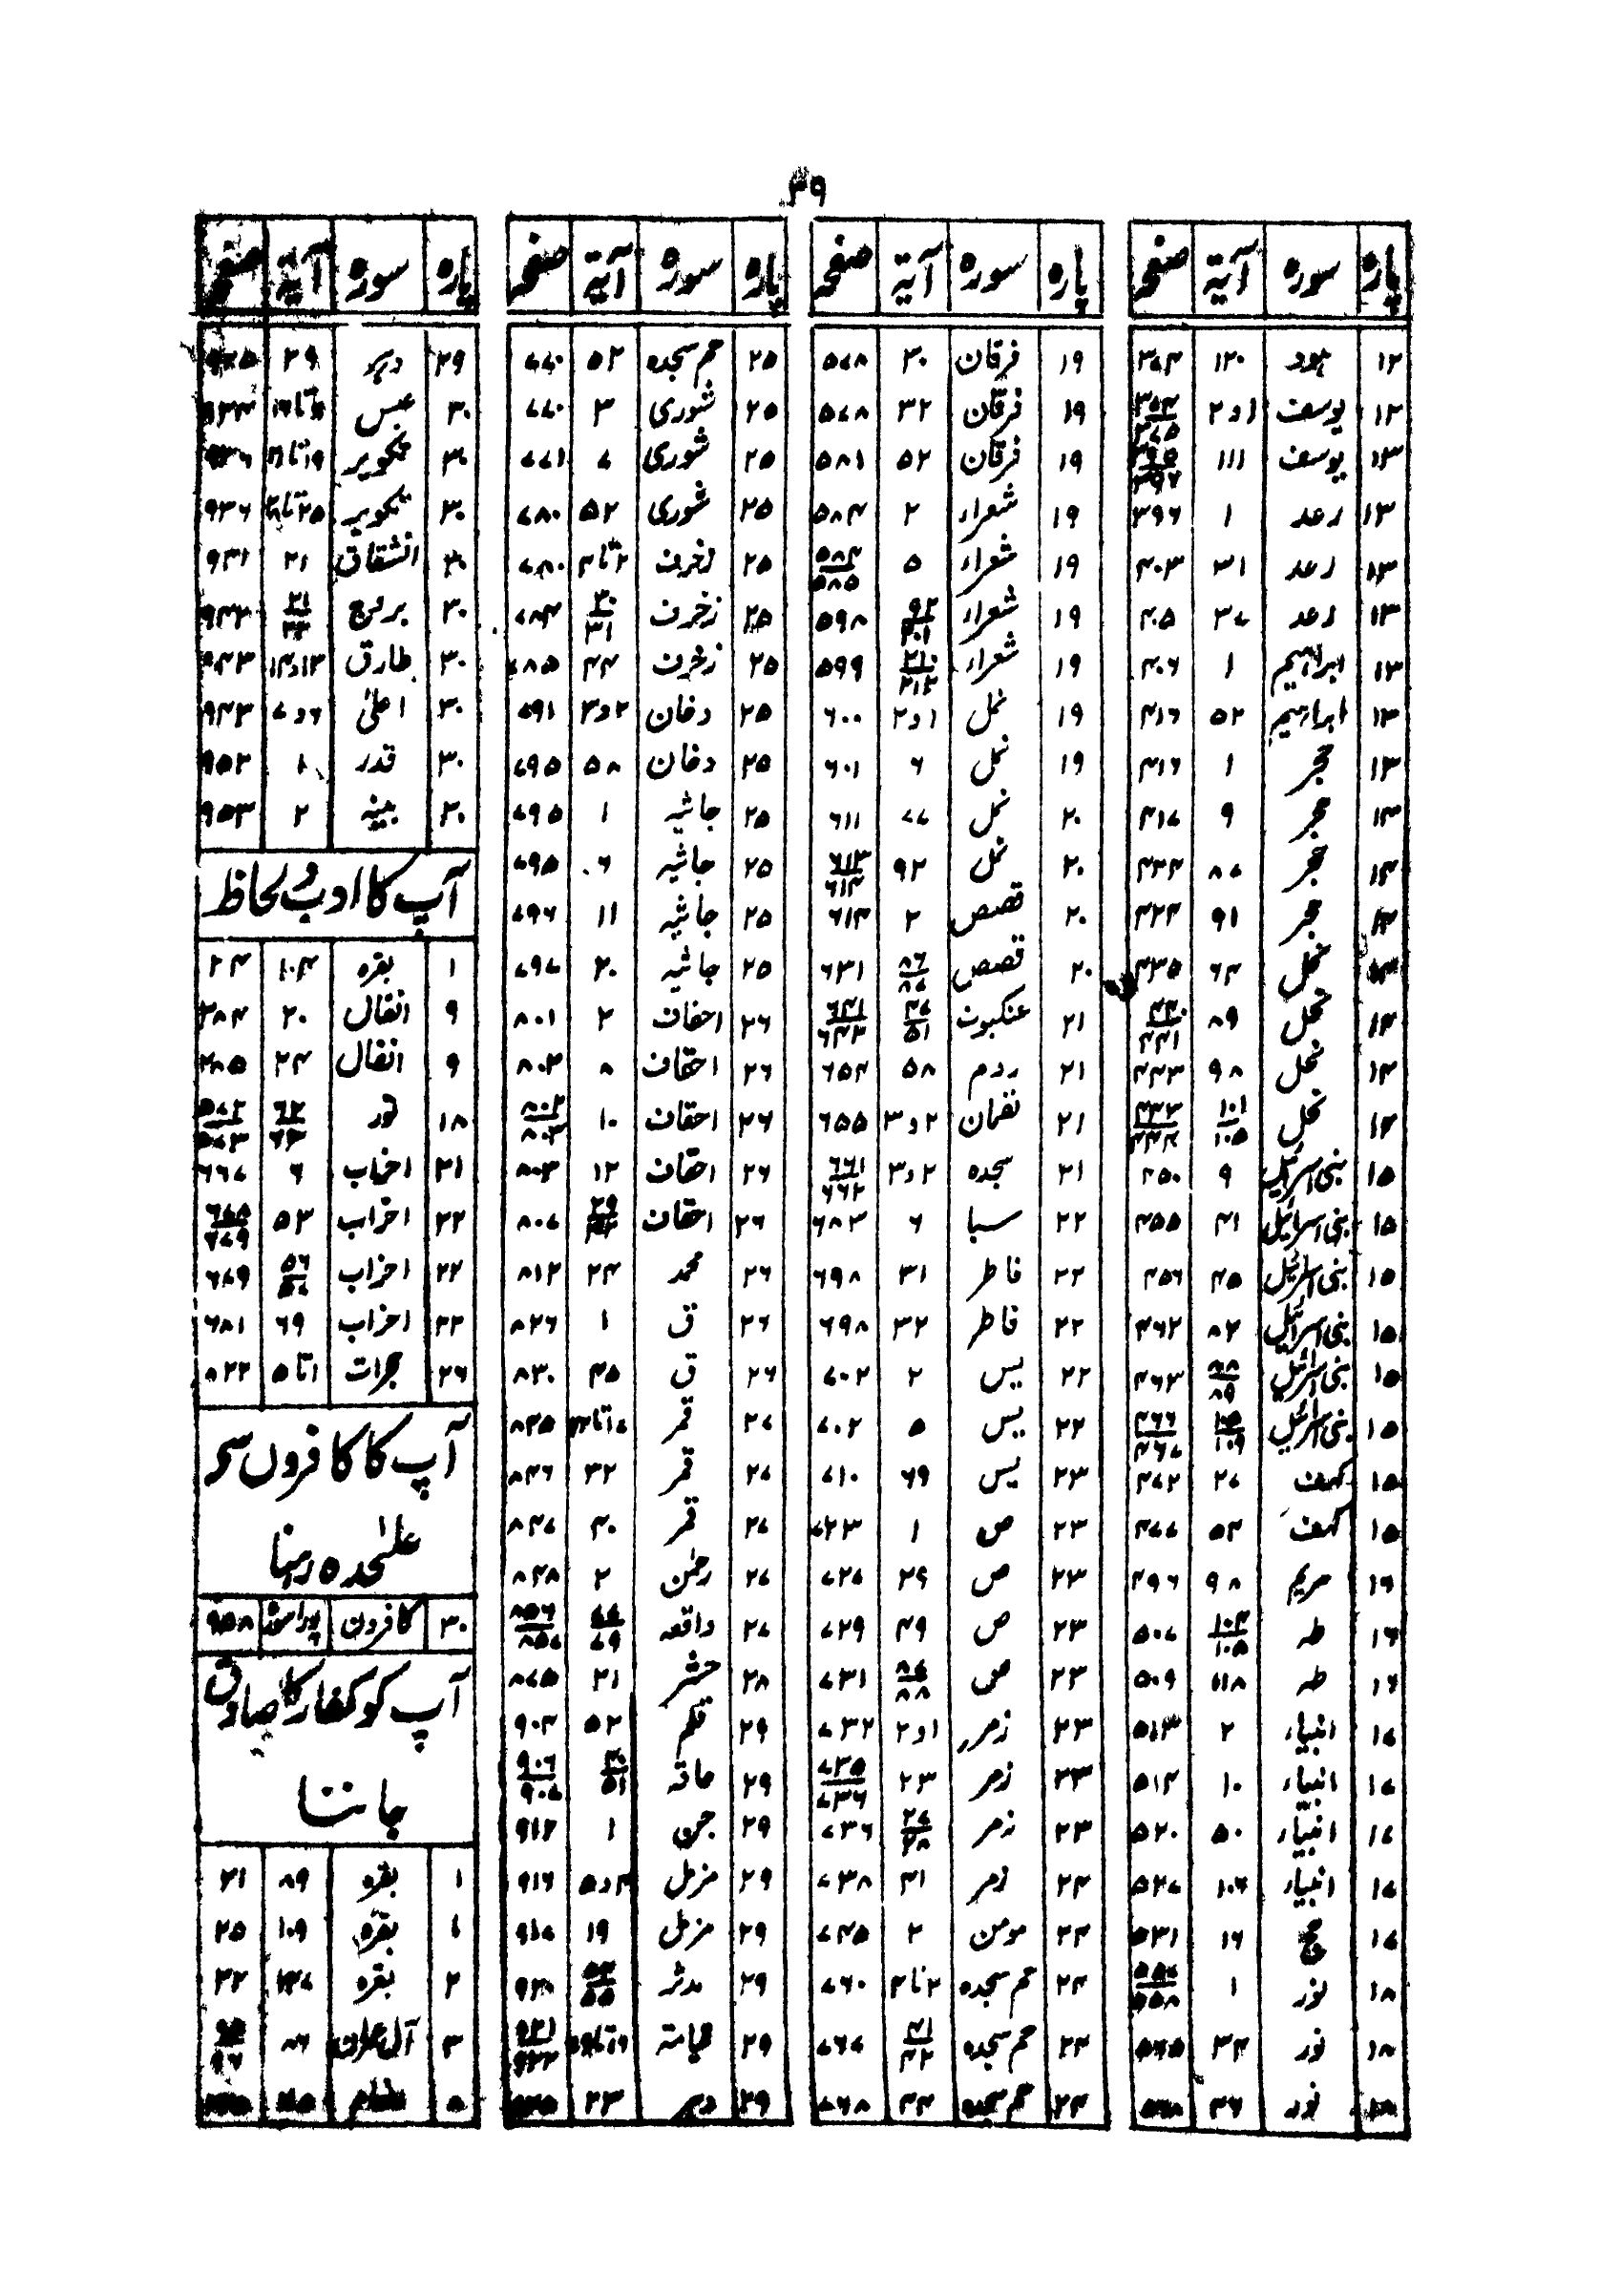 ۳۹
پارہ سورہ آیۃ صفحہ
۱۲ ہود ۱۲۰ ۳۷۴
۱۲ یوسف ۱و۲
۱۳ یوسف ۱۱۱
۱۳ رعد ۱ ۳۹۶
۱۳ رعد ۳۱ ۴۰۳
۱۳ رعد ۳۷ ۴۰۵
۱۳ ابراہیم ۱ ۴۰۶
۱۳ ابراہیم ۵۲ ۴۱۶
۱۳ حجر ۱ ۴۱۶
۱۴ حجر ۹ ۴۱۷
۱۴ حجر ۸۷
۱۴ حجر ۹۱ ۴۲۴
۱۴ نحل ۶۴ ۴۳۵
۱۴ نحل ۸۹ ۴۴۰/۴۴۱
۱۴ نحل ۹۸ ۴۴۳
۱۴ نحل ۱۰۱/۱۰۵ ۴۴۳/۴۴۴
۱۵ بنی اسرائیل ۹ ۴۵۰
۱۵ بنی اسرائیل ۴۱ ۴۵۵
۱۵ بنی اسرائیل ۴۵ ۴۵۶
۱۵ بنی اسرائیل ۸۲ ۴۶۲
۱۵ بنی اسرائیل ۸۸/۸۹ ۴۶۳
۱۵ بنی اسرائیل ۱۰۵/۱۰۹ ۴۶۶/۴۶۷
۱۵ کہف ۲۷ ۴۷۲
۱۵ کہف ۵۴ ۴۷۷
۱۶ مریم ۹۸ ۴۹۶
۱۶ طہ ۱۰۴/۱۰۵ ۵۰۷
۱۶ طہ ۱۱۸ ۵۰۹
۱۷ انبیاء ۲ ۵۱۳
۱۷ انبیاء ۱۰ ۵۱۴
۱۷ انبیاء ۵۰ ۵۲۰
۱۷ انبیاء ۱۰۶ ۵۲۷
۱۷ حج ۱۶ ۵۳۱
۱۸ نور ۱ ۵۵۷/۵۵۸
۱۸ نور ۳۴ ۵۶۵
۱۸ نور ۴۶ ۵۶۸
پارہ سورہ آیۃ صفحہ
۱۹ فرقان ۳۰ ۵۷۸
۱۹ فرقان ۳۲ ۵۷۸
۱۹ فرقان ۵۲ ۵۸۱
۱۹ شعراء ۲ ۵۸۴
۱۹ شعراء ۵ ۵۸۴/۵۸۵
۱۹ شعراء ۵۹۸
۱۹ شعراء ۲۱۰/۲۱۲ ۵۹۹
۱۹ نمل ۱و۲ ۶۰۰
۱۹ نمل ۶ ۶۰۱
۲۰ نمل ۷۷ ۶۱۱
۲۰ نمل ۹۲ ۶۱۳/۶۱۴
۲۰ قصص ۲ ۶۱۴
۲۰ قصص ۸۶/۸۷ ۶۳۱
۲۱ عنکبوت ۴۷/۵۱
۲۱ روم ۵۸ ۶۵۴
۲۱ لقمان ۲و۳ ۶۵۵
۲۱ سجدہ ۲و۳ ۶۶۱/۶۶۲
۲۲ سبا ۶ ۶۸۳
۲۲ فاطر ۳۱ ۶۹۸
۲۲ فاطر ۳۲ ۶۹۸
۲۲ یس ۲ ۷۰۲
۲۲ یس ۵ ۷۰۲
۲۳ یس ۶۹ ۷۱۰
۲۳ ص ۱ ۷۲۳
۲۳ ص ۲۹ ۷۲۷
۲۳ ص ۴۹ ۷۲۹
۲۳ ص ۸۷/۸۸ ۷۳۱
۲۳ زمر ۱و۲ ۷۳۲
۲۳ زمر ۲۳ ۷۳۵/۷۳۶
۲۳ زمر ۲۷/۲۸ ۷۳۶
۲۴ زمر ۴۱ ۷۳۸
۲۴ مومن ۲ ۷۴۵
۲۴ حم سجدہ ۲تا۴ ۷۶۰
۲۴ حم سجدہ ۴۱/۴۲ ۷۶۷
۲۴ حم سجدہ ۴۴ ۷۶۸
پارہ سورہ آیۃ صفحہ
۲۵ حم سجدہ ۵۲ ۷۷۰
۲۵ شوری ۳ ۷۷۰
۲۵ شوری ۷ ۷۷۱
۲۵ شوری ۵۲ ۷۸۰
۲۵ زخرف ۲تا۴ ۷۸۰
۲۵ زخرف ۳۰/۳۱ ۷۸۴
۲۵ زخرف ۴۴ ۷۸۵
۲۵ دخان ۲و۳ ۷۹۱
۲۵ دخان ۵۸ ۷۹۵
۲۵ جاثیہ ۱ ۷۹۵
۲۵ جاثیہ ۶ ۷۹۵
۲۵ جاثیہ ۱۱ ۷۹۶
۲۵ جاثیہ ۲۰ ۷۹۷
۲۶ احقاف ۲ ۸۰۱
۲۶ احقاف ۸ ۸۰۲
۲۶ احقاف ۱۰ ۸۰۲/۸۰۳
۲۶ احقاف ۱۲ ۸۰۳
۲۶ احقاف ۸۰۷
۲۶ محمد ۲۴ ۸۱۲
۲۶ ق ۱ ۸۲۶
۲۶ ق ۴۵ ۸۳۰
۲۷ قمر ۸۴۵
۲۷ قمر ۳۲ ۸۴۶
۲۷ قمر ۴۰ ۸۴۷
۲۷ رحمٰن ۲ ۸۴۸
۲۷ واقعہ ۷۷/۷۹ ۸۵۶/۸۵۷
۲۸ حشر ۲۱ ۸۷۵
۲۹ قلم ۵۲ ۹۰۴
۲۹ حاقہ ۴۰/۵۱ ۹۰۶/۹۰۷
۲۹ جن ۱ ۹۱۲
۲۹ مزمل ۴و۵ ۹۱۶
۲۹ مزمل ۱۹ ۹۱۷
۲۹ مدثر ۵۴/۵۵
۲۹ قیامۃ
۲۹ دہر ۲۳
پارہ سورہ آیۃ صفحہ
۲۹ دہر ۲۹
۳۰ عبس
۳۰ تکویر
۳۰ تکویر ۹۳۶
۳۰ انشقاق ۲۱ ۹۴۱
۳۰ بروج
۳۰ طارق ۱۳و۱۴ ۹۴۳
۳۰ اعلیٰ ۶و۷ ۹۴۳
۳۰ قدر ۱ ۹۵۲
۳۰ بینہ ۲ ۹۵۳
آپ کا ادب و لحاظ
۱ بقرہ ۱۰۴ ۲۴
۹ انفال ۲۰ ۲۸۴
۹ انفال ۲۴ ۲۸۵
۱۸ نور ۶۲/۶۳ ۵۷۲/۵۷۳
۲۱ احزاب ۶ ۶۶۷
۲۲ احزاب ۵۳ ۶۷۸/۶۷۹
۲۲ احزاب ۵۶/۵۷ ۶۷۹
۲۲ احزاب ۶۹ ۶۸۱
۲۶ حجرات ۱تا۵ ۸۲۲
آپ کا کافروں سے
علیٰحدہ رہنا
۳۰ کافرون پورا سورۃ ۹۵۸
آپ کو کفار کا صادق
جاننا
۱ بقرہ ۸۹ ۲۱
۱ بقرہ ۱۰۹ ۲۵
۲ بقرہ ۳۲
۳ آل عمران ۸۶